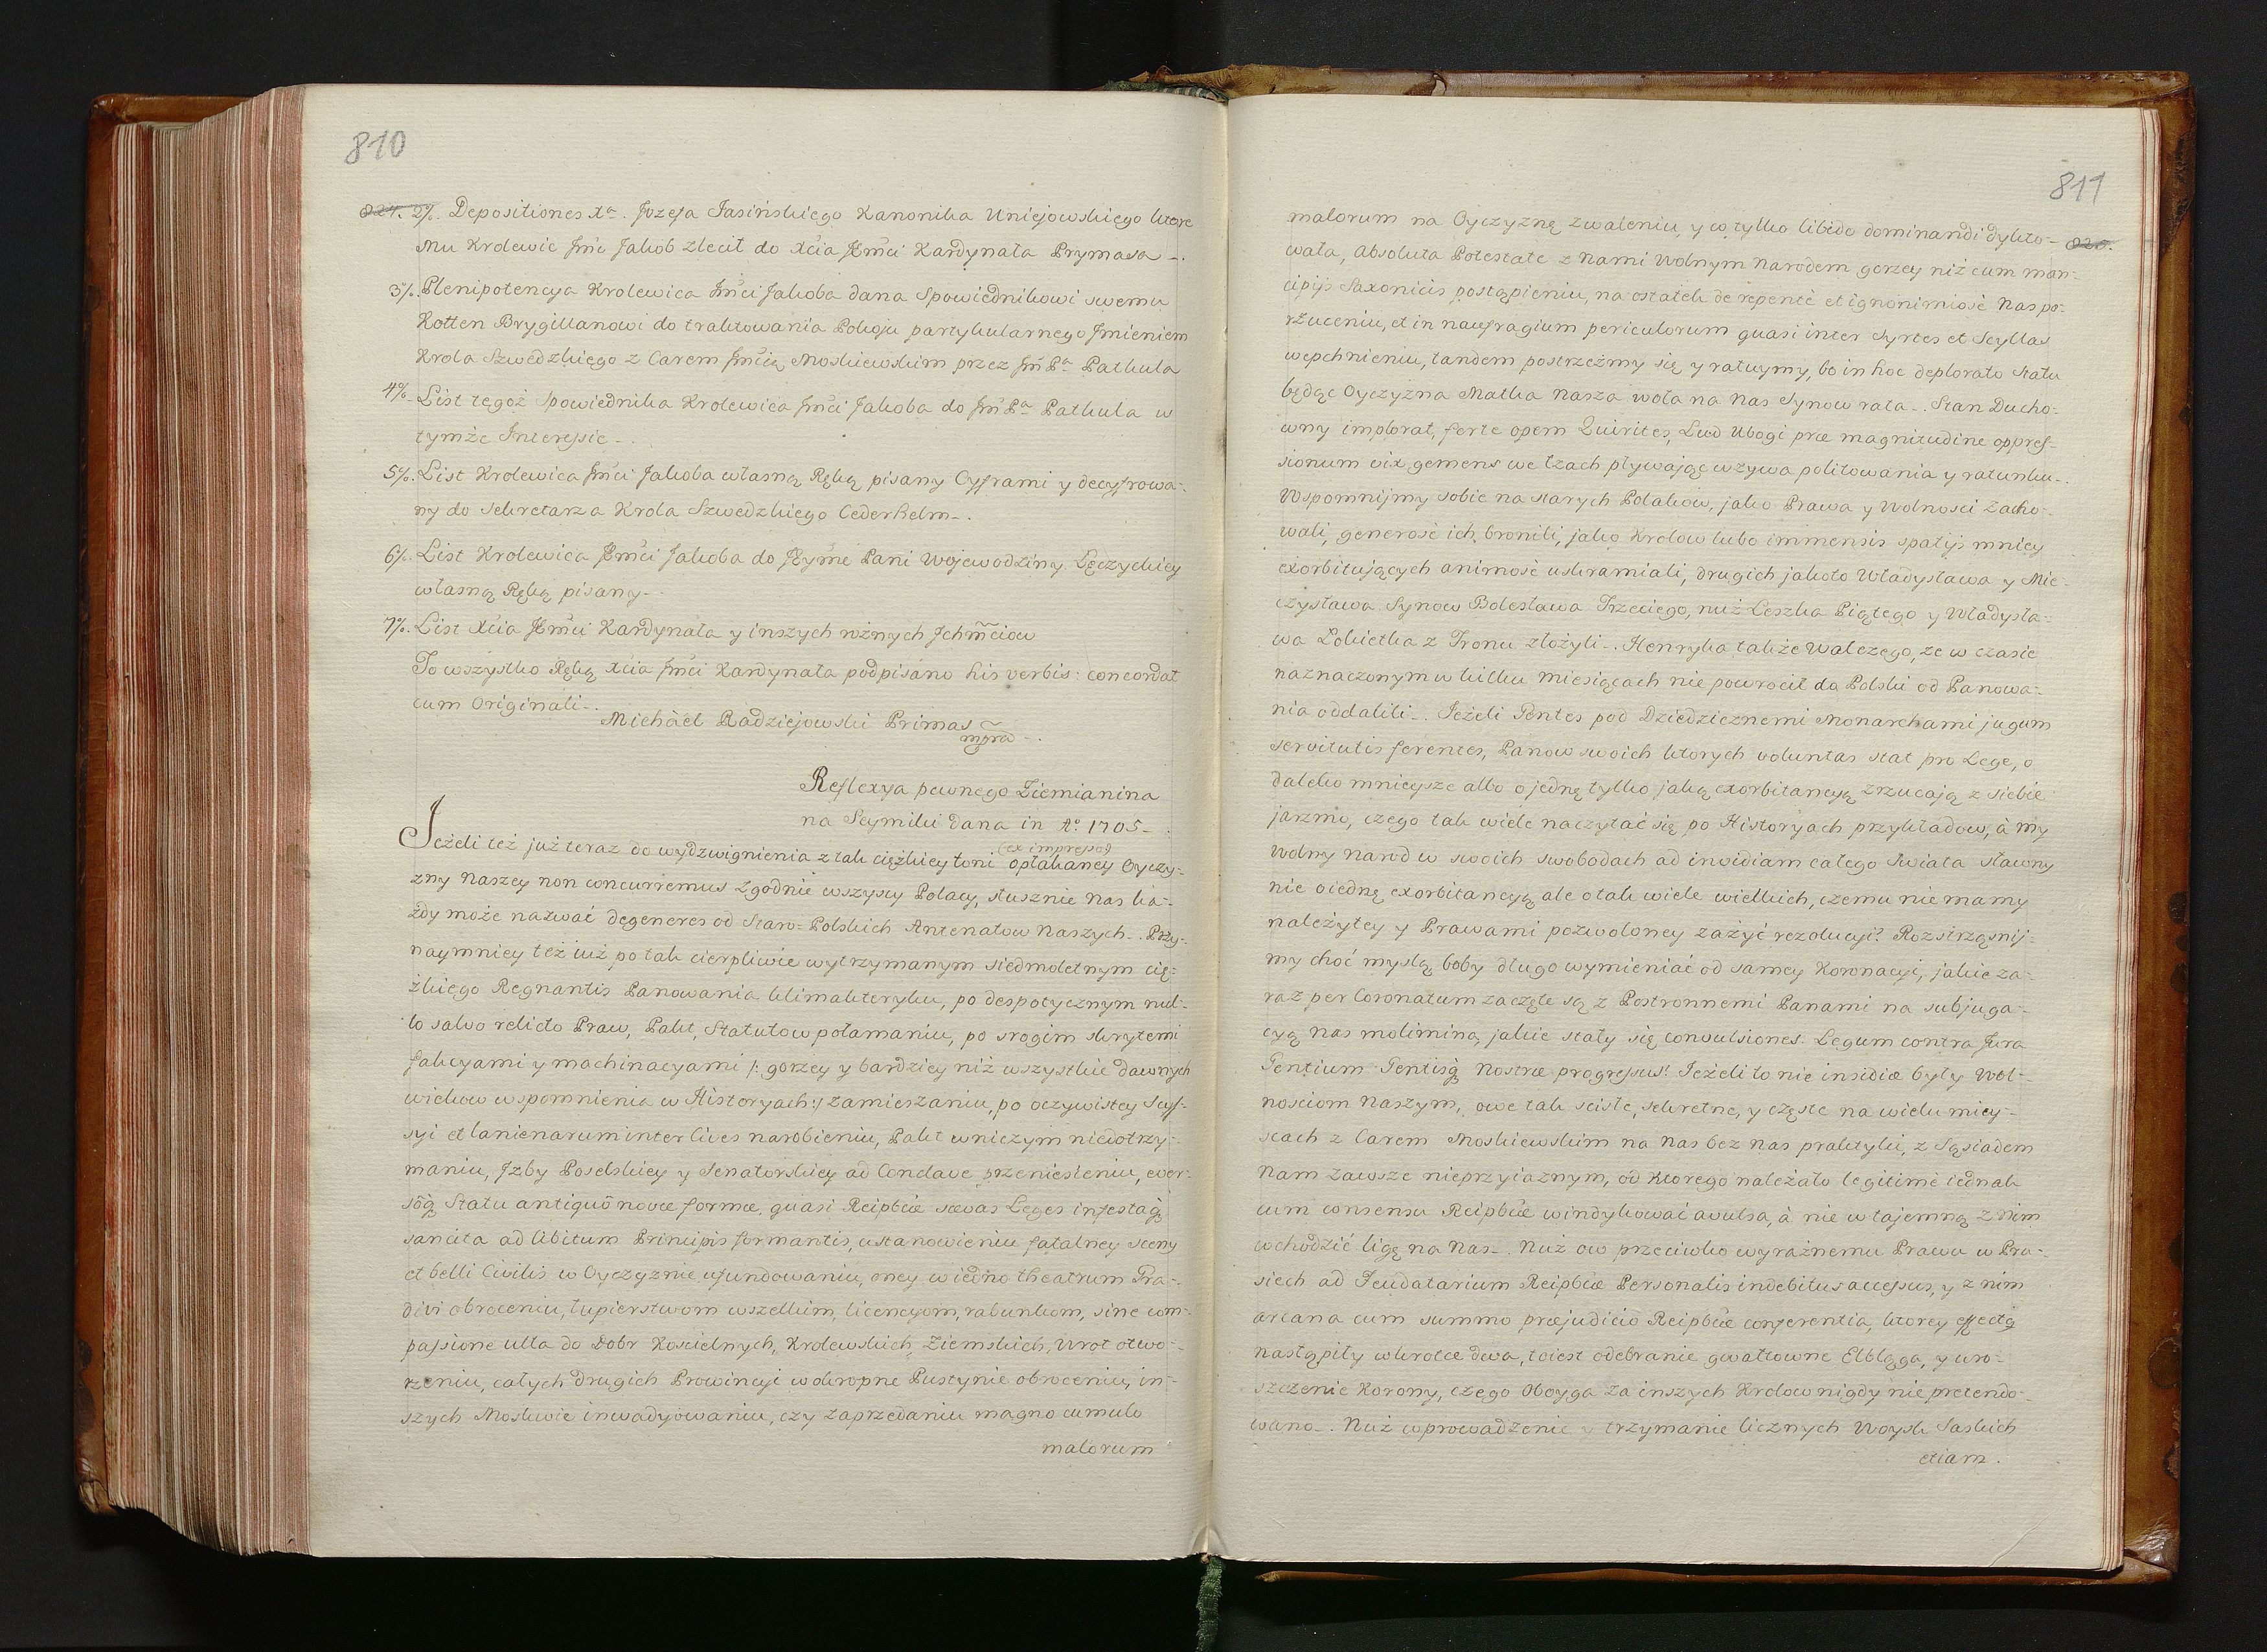 810
824. 2%. Depositiones Xa. Jozefa Jasińskiego Kanonika Uniejowskiego ktore
mu Krolewic Jmć Jakob zlecił do Xćia Jmći Kardynała Prymasa -.
3%. Plenipotencya Krolewica Jmći Jakoba dana Spowiednikowi swemu
Kotten Brygillanowi do traktowania Pokoju partykularnego Jmieniem
Krola Szwedzkiego z Carem Jmćią Moskiewskim przez Jm Pa Patkula
4%. List tegoż Spowiednika Krolewica Jmći Jakoba do Jm Pa Patkula w
tymże Interessie -.
5%. List Krolewica Jmći Jakoba własną Ręką pisany Cyframi y decyfrowa-
ny do Sekretarza Krola Szwedzkiego Cederhelm -.
6%. List Krolewica Jmći Jakoba do Jeymć Pani Wojewodziny Łęczyckiey
własną Ręką pisany -.
7%. List Xćia Jmći Kardynała y inszych rożnych Jchmćiow
To wszystko Ręką Xćia Jmći Kardynała podpisano his verbis: concordat
cum Originali -.
Michäel Radziejowski Primas
mpra -.
Reflexya pewnego Ziemianina
na Seymiki dana in Ao. 1705 -
(ex impresso)
Jeżeli też już teraz do wydzwignienia z tak ciężkiey toni opłakaney Oyczy-
zny Naszey non concurremus zgodnie wszyscy Polacy, słusznie Nas ka-
żdy może nazwać degeneres od Staro-Polskich Antenatow Naszych -. Przy-
naymniey też iuż po tak cierpliwie wytrzymanym siedmoletnym cię-
żkiego Regnantis Panowania klimakteryku, po despotycznym nul-
lo salvo relicto Praw, Pakt, Statutow połamaniu, po srogim skrytemi
fakcyami y machinacyami /: gorzey y bardziey niż wszystkie dawnych
wiekow wspomnienia w Historyach:/ zamieszaniu, po oczywistey Scys-
syi et lanienarum inter Cives narobieniu, Pakt w niczym niedotrzy-
maniu, Jzby Poselskiey y Senatorskiey ad Conclave przeniesieniu, ever-
sõq Statu antiquô novæ formæ, quasi Reipbcæ sævas Leges infestaq
sancita ad libitum Principis formantis, ustanowieniu fatalney sceny
et belli Civilis w Oyczyznie ufundowaniu, oney w iedno theatrum Gra-
divi obroceniu, łupierstwom wszelkim, licencyom, rabunkom, sine com-
passione ulla do Dobr Koscielnych, Krolewskich, Ziemskich, Wrot otwo-
rzeniu, całych drugich Prowincyi w okropne Pustynie obroceniu, in-
szych Moskwie inwadyowaniu, czy zaprzedaniu magno cumulo
malorum
811
825.
malorum na Oyczyznę zwaleniu, y co tylko libido dominandi dykto-
wała, absoluta Potestate z Nami Wolnym Narodem gorzey niż cum man-
cipijs Saxonicis postąpieniu, na ostatek de repentè et ignominiosè Nas po-
rzuceniu, et in naufragium periculorum quasi inter Syrtes et Scyllas
wepchnieniu, tandem postrzeżmy się y ratuymy, bo in hoc deplorato statu
będąc Oyczyzna Matka Nasza woła na Nas Synow rata -. Stan Ducho-
wny implorat, ferte opem Quirites, Lud Ubogi præ magnitudine oppres-
sionum vix gemens we łzach pływając wzywa politowania y ratunku -.
Wspomnijmy sobie na starych Polakow, jako Prawa y Wolnosci zacho-
wali, generosè ich bronili, jako Krolow lubo immensis spatijs mniey
exorbitujących animosè uskramiali, drugich jakoto Władysława y Mie-
czysława Synow Bolesława Trzeciego, nuż Leszka Piątego y Władysła-
wa Łokietka z Tronu złożyli -. Henryka także Walezego, że w czasie
naznaczonym w kilku miesiącach nie powrocił do Polski od Panowa-
nia oddalili -. Jeżeli Gentes pod Dziedzicznemi Monarchami jugum
servitutis ferentes, Panow swoich ktorych voluntas stat pro Lege, o
daleko mnieysze albo o jednę tylko jaką exorbitancyą zrzucają z siebie
jarzmo, czego tak wiele naczytać się po Historyach przykładow, à my
Wolny Narod w swoich swobodach ad invidiam całego Swiata sławny
nie o iednę exorbitancyą ale o tak wiele wielkich, czemu nie mamy
należytey y Prawami pozwoloney zażyć rezolucyi? Rozstrząsnij-
my choć myslą, boby długo wymieniać od samey Koronacyi, jakie za-
raz per Coronatum zaczęte są z Postronnemi Panami na subjuga-
cyą nas molimina, jakie stały się convulsiones Legum contra Jura
Gentium Gentisq Nostræ progressus! Jeżeli to nie insidiæ były Wol-
nosciom Naszym, owe tak scisłe, sekretne, y częste na wielu miey-
scach z Carem Moskiewskim na Nas bez Nas praktyki, z Sąsiadem
Nam zawsze nieprzyiaznym, od ktorego należało legitimè iednak
cum consensu Reipbcæ windykować avulsa, à nie w tajemną z nim
wchodzić ligę na Nas -. Nuż ow przeciwko wyraźnemu Prawu w Pru-
siech ad Feudatarium Reipbcæ Personalis indebitus accessus, y z nim
arcana cum summo præjudicio Reipbcæ conferentia, ktorey effecta
nastąpiły wkrotce dwa, toiest odebranie gwałtowne Elbląga, y uro-
szczenie Korony, czego Oboyga za inszych Krolow nigdy nie pretendo-
wano -. Nuż wprowadzenie y trzymanie licznych Woysk Saskich
etiam.